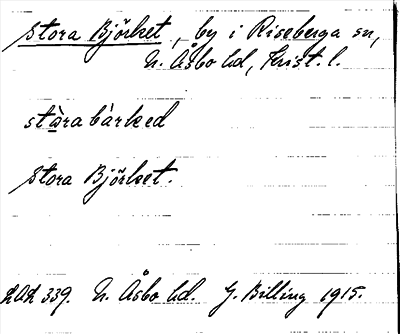 Stora Björket, by i Riseberga sn,
N. Åsbo hd, Krist. l.
stàra bàrked
Stora Björket.
LAL 339. N. Åsbo hd. G. Billing 1915.